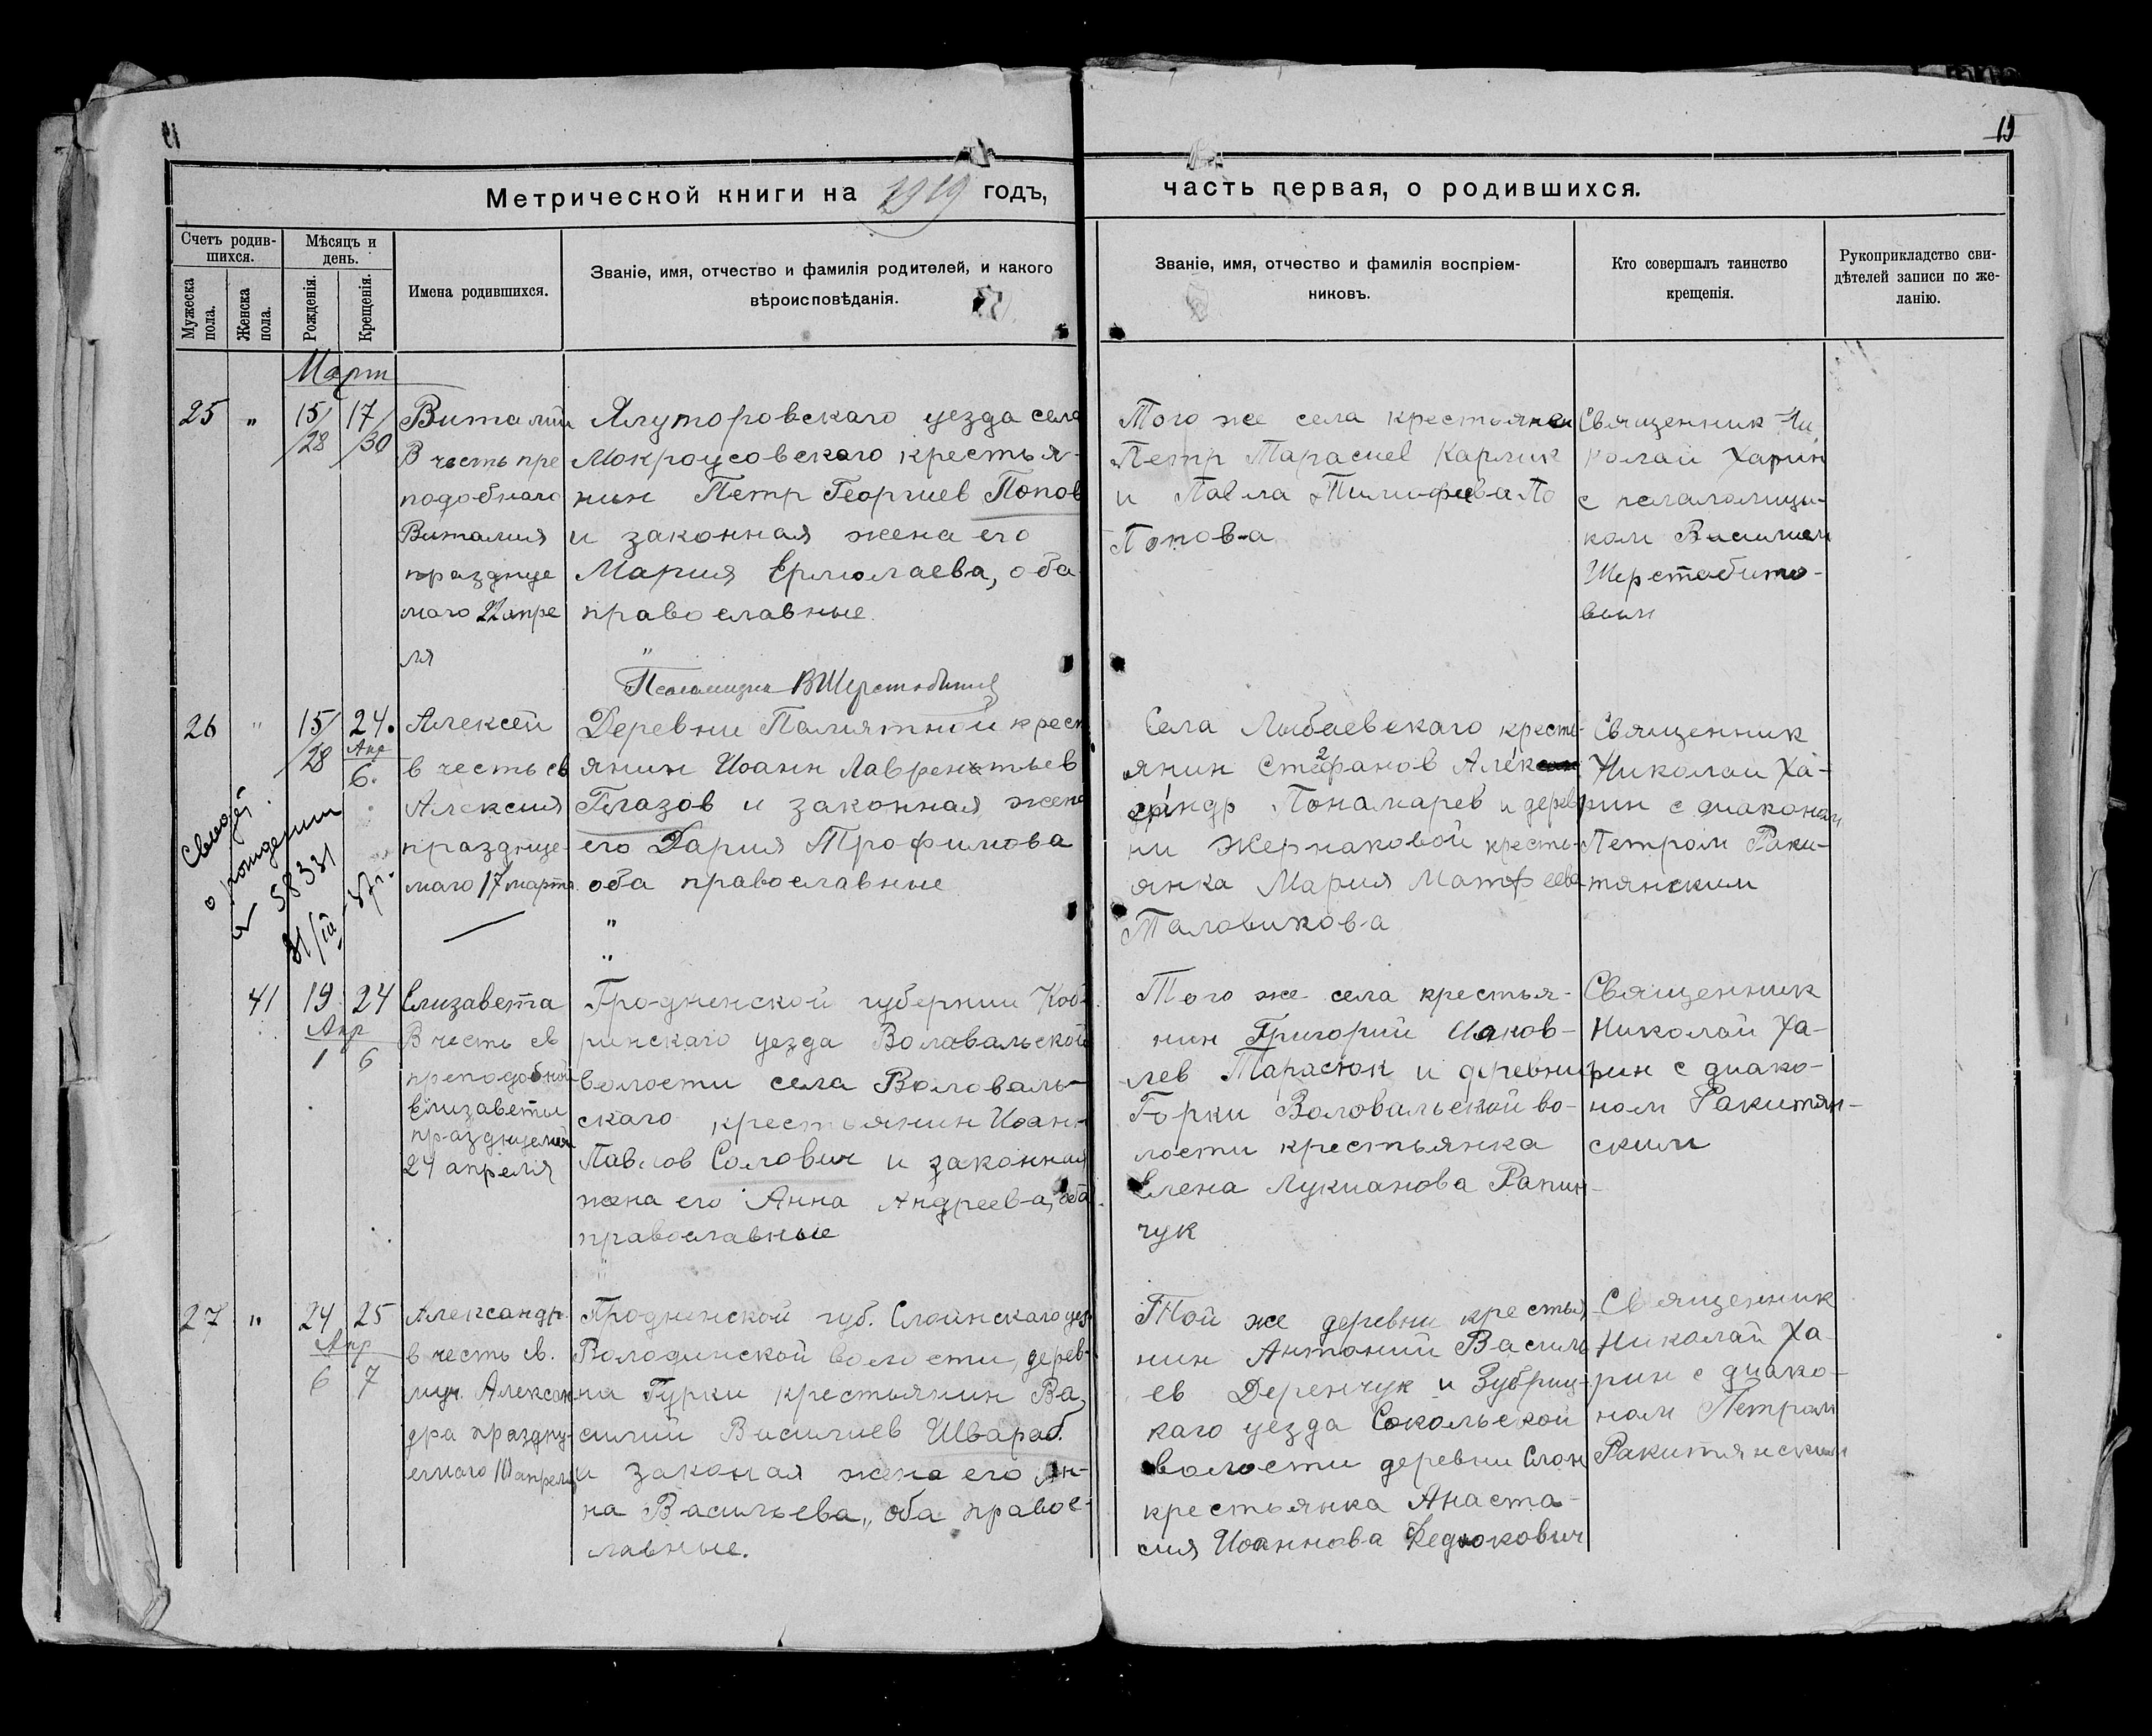 19
Метрической книги на 1919 годъ,
часть первая, о родившихся.
Счетъ родив-
шихся.
Мужеска
пола.
Женска
пола.
Мѣсяцъ и
день.
Рожденія.
Крещенія.
Имена родившихся.
Званіе, имя, отчество и фамилія родителей, и какого
вѣроисповѣданія.
Званіе, имя, отчество и фамилія воспріем-
никовъ.
Кто совершалъ таинство
крещенія.
Рукоприкладство сви-
дѣтелей записи по же-
ланію.
Март
25 " 15/28 17/30
Виталий
В честь пре
подобнаго
Виталия
празднуе
маго 22 апре
ля
Ялуторовскаго уезда села
Мокроусовскаго крестья-
нин Петр Георгиев Попов
и законная жена его
Мария Ермолаева, оба
православные.
"
Псаломщик В Шерстобитов
Того же села крестьяне
Петр Тарасиев Карлик
и Павла По
Попова
Священник Ни
колай Харин
с псаломщи-
ком Василием
Шерстобито-
вым
26 " 15/28 24.
Апр
6.
Алексей
в честь св
Алексия
празднуе-
маго 17 марта
Деревни Памятной крест
янин Иоанн Лаврентьев
Глазов и законная жена
его Дария Трофимова
оба православные
"
"
Села Лыбаевскаго кресть-
янин Стефанов Алек
сандр Понамарев и дерев
ни Жернаковой кресть-
янка Мария Матфеева
Таловикова
Священник
Николай Ха-
рин с диаконом
Петром Раки-
тянским
о рождении
58331
41 19 24
Апр
1 6
Елизавета
В честь св
преподобной
Елизаветы
празднуемой
24 апреля
Гродненской губернии Коб-
ринскаго уезда Волавальской
волости села Воловаль-
скаго крестьянин Иоанн
Павлов Солович и законная
жена его Анна Андреева, оба
православные
"
Того же села крестья-
нин Григорий Иаков-
лев Тарасюк и деревни
Горки Воловальской во-
лости крестьянка
Елена Лукианова Рапин-
чук
Священник
Николай Ха-
рин с диако-
ном Ракитян-
ским
27 " 24 25
Апр
6 7
Александр
в честь св.
муч. Алексан
дра праздну-
емаго 10 апреля
Гродненской губ. Слонинскаго уез
Володинской волости, дерев-
на Гурки крестьянин Ва
силий Василиев Швараб.
и законая жена его Ан-
на Васильева,, оба правос-
лавные.
Той же деревни крестья
нин Антоний Василь
ев Деренчук и Зубриц-
каго уезда Сокольской
волости деревни Слон
крестьянка Анаста-
сия Иоаннова Федюкович
Священник
Николай Ха-
рин с диако-
ном Петром
Ракитянским